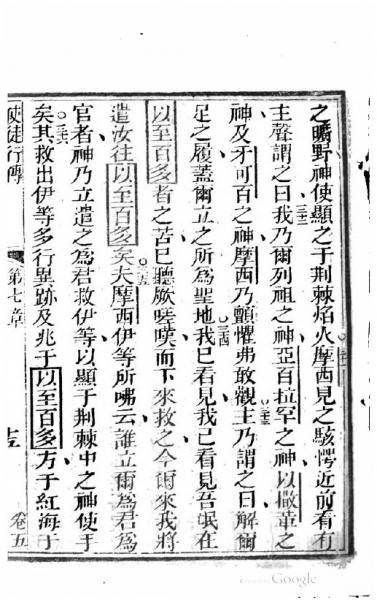 之曠野神使顯之于荆棘焰火摩西見之駭愕近前看有
主聲謂之曰三二我乃爾列祖之神亞百拉罕之神以撒革之
神及牙可百之神摩西乃顫懼弗敢觀三三主乃謂之曰解爾
足之履蓋爾立之所為聖地三四我已看見我已看見吾氓在
以至百多者之苦已聽厥嗟嘆而下來救之今爾來我將
遣汝往以至百多矣三五夫摩西伊等所咈云誰立爾為君為
官者神乃立遣之為君救伊等以顯于荆棘中之神使手
矣三六其救出伊等多行異跡及兆于以至百多方于紅海于
使徒行傳
第七章
卷五
Google